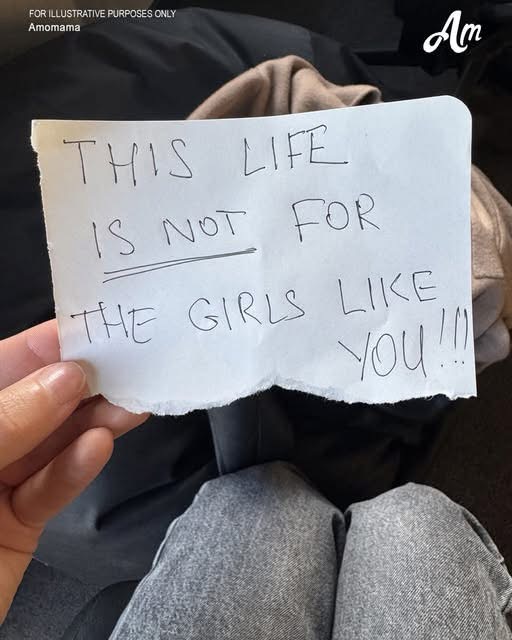 FOR ILLUSTRATIVE PURPOSES ONLY
Amomama
Am
THIS LIFE
IS NOT FOR
THE GIRLS LIKE
YOU!!!